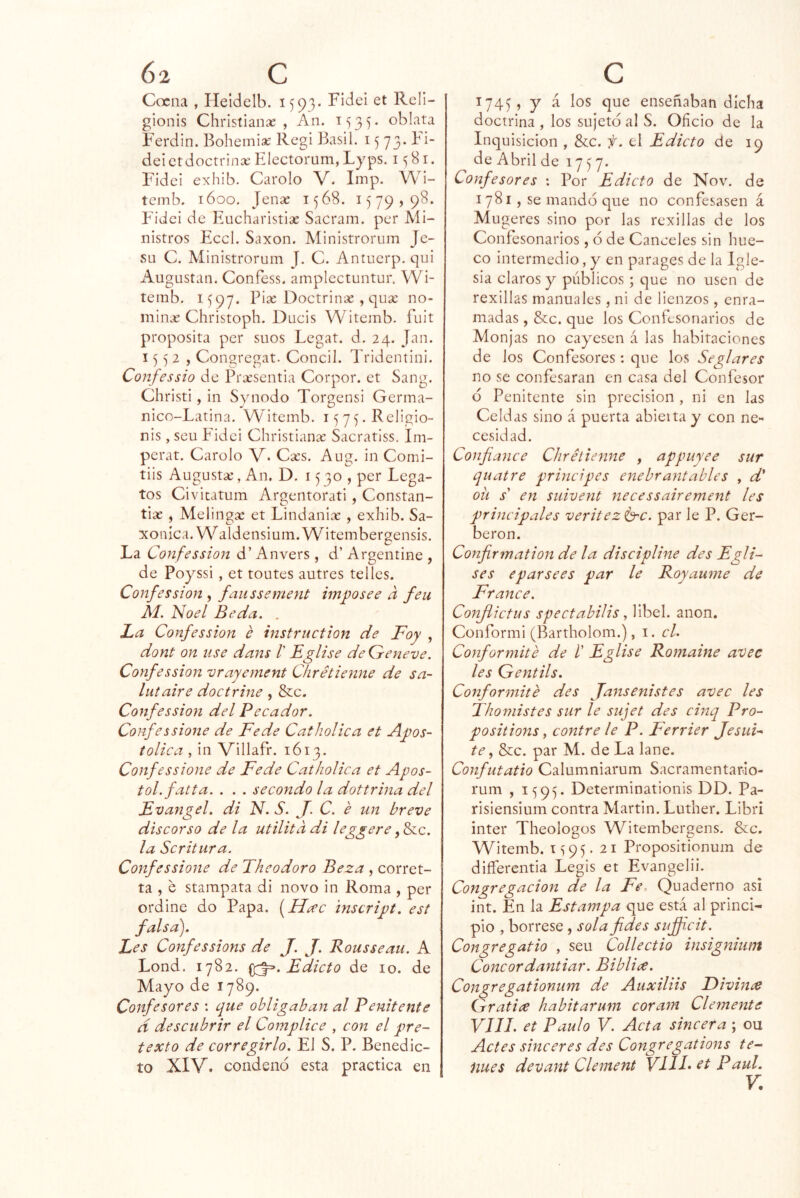 62 C
Cœna , Heidelb. 1593. Fidei et Reli-
gionis Christianæ , An. 1535. oblata
Ferdin. Bohemiæ Regi Basil. 1573. Fi-
dei et doctrinæ Electorum, Lyps. 1581.
Fidei exhib. Carolo V. Imp. Wi-
temb. 1600. Jenæ 1568. 1579, 98.
Fidei de Eucharistiæ Sacram. per Mi-
nistros Eccl. Saxon. Ministrorum Je-
su C. Ministrorum J. C. Antuerp. qui
Augustan. Confess. amplectuntur. Wi-
temb. 1597. Piæ Doctrinæ , quæ no-
minæ Christoph. Ducis Witemb. fuit
proposita per suos Legat. d. 24. Jan.
1552 , Congregat. Concil. Tridentini.
Confessio de Præsentia Corpor. et Sang.
Christi , in Synodo Torgensi Germa-
nico-Latina. Witemb. 1575. Religio-
nis , seu Fidei Christianæ Sacratiss. Im-
perat. Carolo V. Cæs. Aug. in Comi-
tiis Augustæ, An. D. 1530 , per Lega-
tos Civitatum Argentorati , Constan-
tiæ , Melingæ et Lindaniæ , exhib. Sa-
xonica. Waldensium. Witembergensis.
La Confession d' Anvers , d' Argentine ,
de Poyssi , et toutes autres telles.
Confession , faussement imposee à feu
M. Noel Beda.
La Confession è instruction de Foy ,
dont on use dans l' Eglise de Geneve.
Confession vrayement Chrêtienne de sa-
lutaire doctrine , &c.
Confession del Pecador.
Confessione de Fede Catholica et Apos-
tolica , in Villafr. 1613.
Confessione de Fede Catholica et Apos-
tol. fatta. . . . secondo la dottrina del
Evangel. di N. S. J. C. è un breve
discorso de la utilità di leggere , &c.
la Scritura.
Confessione de Theodoro Beza , corret-
ta , è stampata di novo in Roma , per
ordine do Papa. (Hæc inscript. est
falsa).
Les Confessions de J. J. Rousseau. A
Lond. 1782. ☞. Edicto de 10. de
Mayo de 1789.
Confesores : que obligaban al Penitente
á descubrir el Complice , con el pre-
texto de corregirlo. El S. P. Benedic-
to XIV. condenó esta practica en
C
1745 , y á los que enseñaban dicha
doctrina , los sujetó al S. Oficio de la
Inquisicion , &c. ℣. el Edicto de 19
de Abril de 1757.
Confesores : Por Edicto de Nov. de
1781 , se mandó que no confesasen á
Mugeres sino por las rexillas de los
Confesonarios , ó de Canceles sin hue-
co intermedio , y en parages de la Igle-
sia claros y públicos ; que no usen de
rexillas manuales , ni de lienzos , enra-
madas , &c. que los Confesonarios de
Monjas no cayesen á las habitaciones
de los Confesores : que los Seglares
no se confesaran en casa del Confesor
ó Penitente sin precision , ni en las
Celdas sino á puerta abierta y con ne-
cesidad.
Confiance Chrêtienne , appuyee sur
quatre principes enebrantables , d'
où s' en suivent necessairement les
principales veritez &c. par le P. Ger-
beron.
Confirmation de la discipline des Egli-
ses eparsees par le Royaume de
France.
Conflictus spectabilis , libel. anon.
Conformi (Bartholom.) , 1. cl.
Conformitè de l' Eglise Romaine avec
les Gentils.
Conformitè des Jansenistes avec les
Thomistes sur le sujet des cinq Pro-
positions , contre le P. Ferrier Jesui-
te , &c. par M. de La lane.
Confutatio Calumniarum Sacramentario-
rum , 1595. Determinationis DD. Pa-
risiensium contra Martin. Luther. Libri
inter Theologos Witembergens. &c.
Witemb. 1595. 21 Propositionum de
differentia Legis et Evangelii.
Congregacion de la Fe. Quaderno asi
int. En la Estampa que está al princi-
pio , borrese , sola fides sufficit.
Congregatio , seu Collectio insignium
Concordantiar. Bibliæ.
Congregationum de Auxiliis Divinæ
Gratiæ habitarum coram Clemente
VIII. et Paulo V. Acta sincera ; ou
Actes sinceres des Congregations te-
nues devant Clement VIII. et Paul.
V.